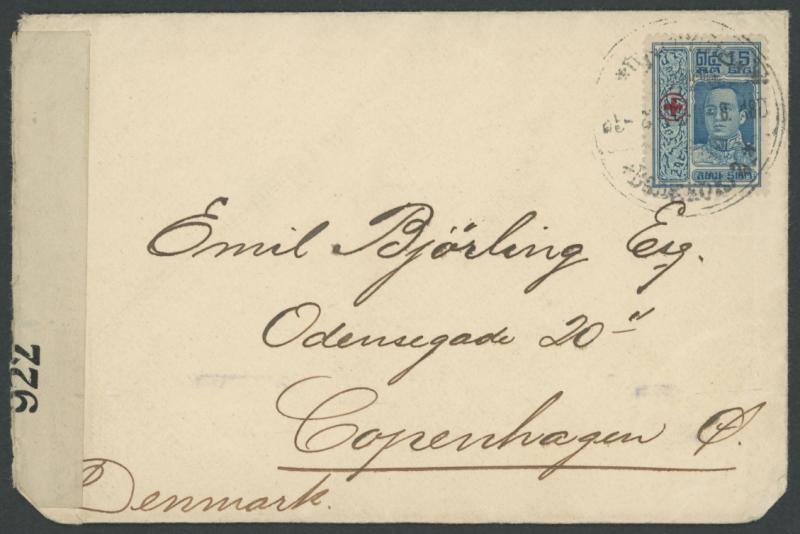 15
Emil Bjórling Esq.
Odensegade 20"
Copenhagen Ø.
Denmark.
922